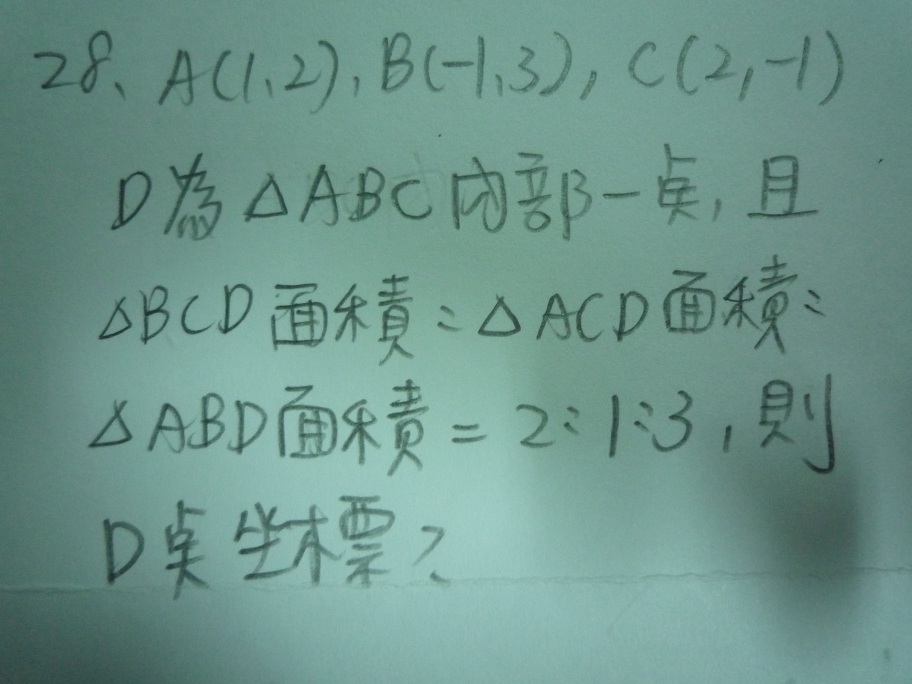 28、A(1,2), B(-1,3), C(2,-1)
D為△ABC內部一点,且
△BCD面積:△ACD面積:
△ABD面積=2:1:3,則
D点坐標?